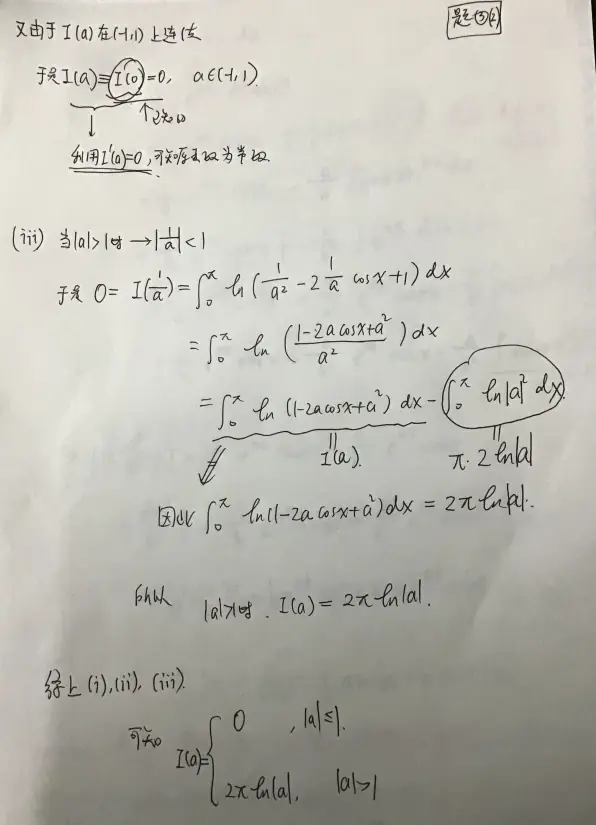 题(3)(2)
又由于 I(a) 在(-1,1) 上连续
于是 I(a)≡I(0)=0, a∈(-1,1).
↑已知
利用I'(a)=0,可知原函数为常数.
(iii) 当|a|>1时 →|1/a|<1
于是 0= I(1/a) = ∫₀^π ln(1/a² - 2 1/a cosx+1) dx
= ∫₀^π ln ((1-2acosx+a²)/a²) dx
= ∫₀^π ln (1-2acosx+a²) dx - ∫₀^π ln|a|² dx.
I(a). π·2ln|a|
因此 ∫₀^π ln(1-2acosx+a²)dx = 2πln|a|.
所以 |a|>1时. I(a) = 2πln|a|.
综上 (i),(ii), (iii).
可知 I(a)= { 0 , |a|≤1.
2πln|a|, |a|>1